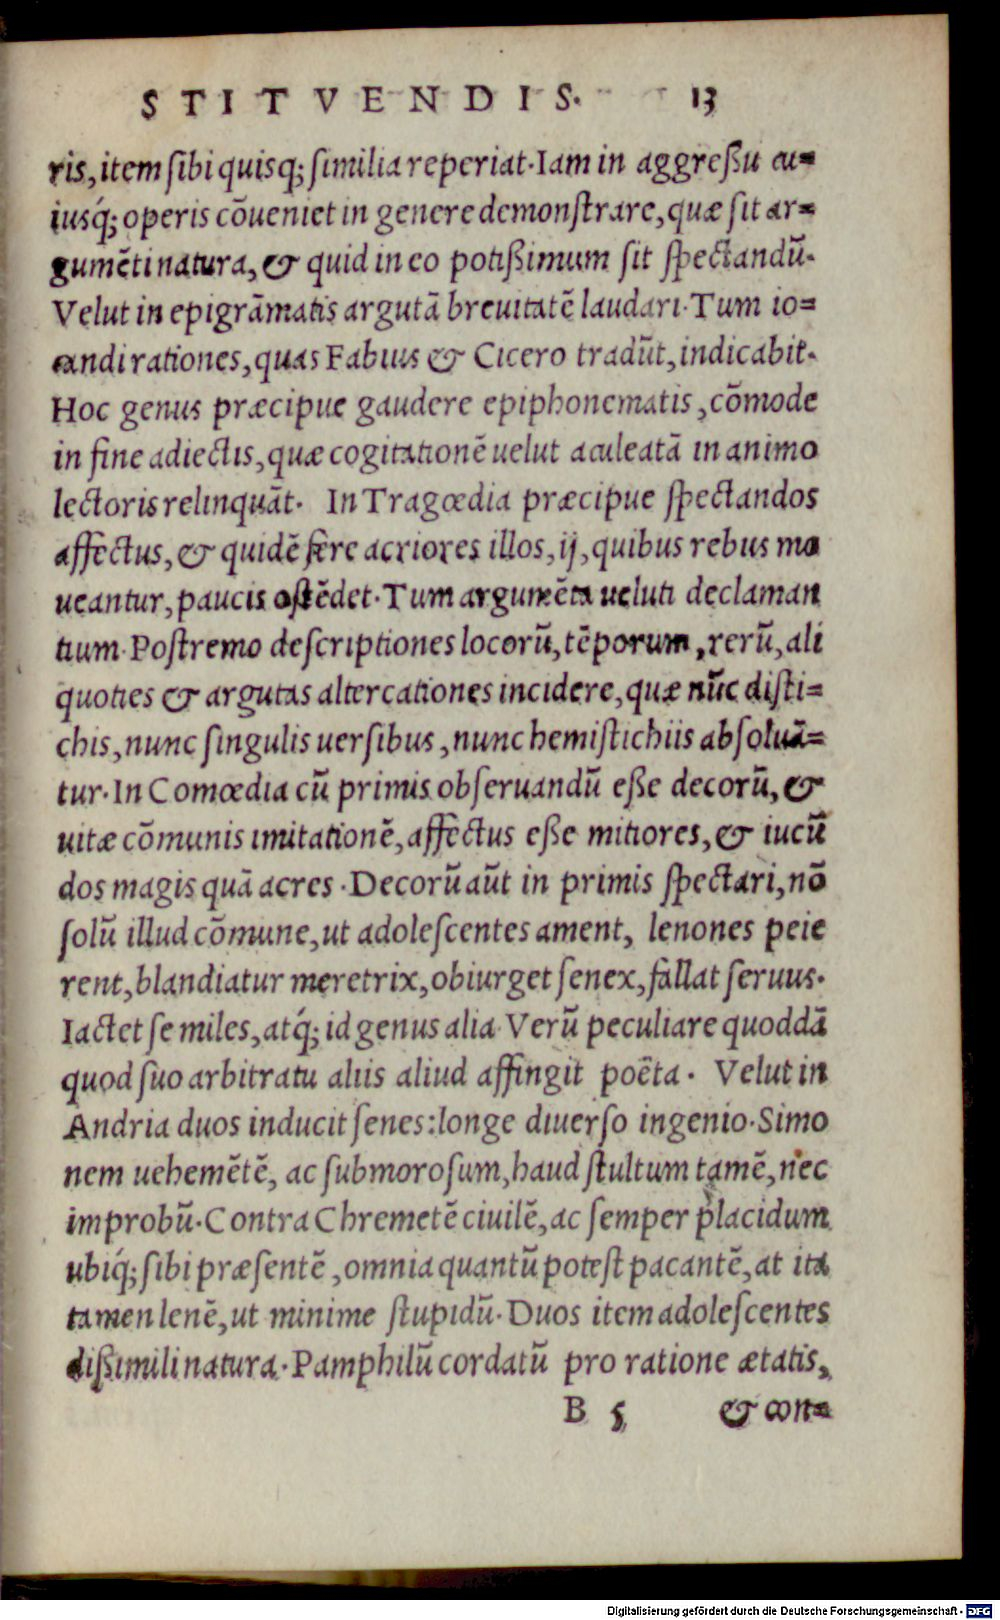 STITVENDIS. 13
ris, item ſibi quisq; ſimilia reperiat. Iam in aggreßu cu=
iusq́; operis cōueniet in genere demonſtrare, quæ ſit ar=
gumēti natura, & quid in eo potißimum ſit ſpectandū.
Velut in epigrāmatis argutā breuitatē laudari. Tum io=
candi rationes, quas Fabius & Cicero tradūt, indicabit.
Hoc genus præcipue gaudere epiphonematis, cōmode
in fine adiectis, quæ cogitationē uelut aculeatā in animo
lectoris relinquāt. In Tragœdia præcipue ſpectandos
affectus, & quidē fere acriores illos, ij, quibus rebus mo
ueantur, paucis oſtēdet. Tum argumēta ueluti declaman
tium. Poſtremo deſcriptiones locorū, tēporum, rerū, ali
quoties & argutas altercationes incidere, quæ nūc diſti=
chis, nunc ſingulis uerſibus, nunc hemiſtichiis abſoluā=
tur. In Comœdia cū primis obſeruandū eße decorū, &
uitæ cōmunis imitationē, affectus eße mitiores, & iucū
dos magis quā acres. Decorū aūt in primis ſpectari, nō
ſolū illud cōmune, ut adoleſcentes ament, lenones peie
rent, blandiatur meretrix, obiurget ſenex, fallat ſeruus.
Iactet ſe miles, atq́; id genus alia. Verū peculiare quoddā
quod ſuo arbitratu aliis aliud affingit poēta. Velut in
Andria duos inducit ſenes: longe diuerſo ingenio. Simo
nem uehemētē, ac ſubmoroſum, haud ſtultum tamē, nec
improbū. Contra Chremetē ciuilē, ac ſemper placidum
ubiq́; ſibi præſentē, omnia quantū poteſt pacantē, at ita
tamen lenē, ut minime ſtupidū. Duos item adoleſcentes
dißimili natura. Pamphilū cordatū pro ratione ætatis,
B 5 & con=
Digitalisierung gefördert durch die Deutsche Forschungsgemeinschaft - DFG